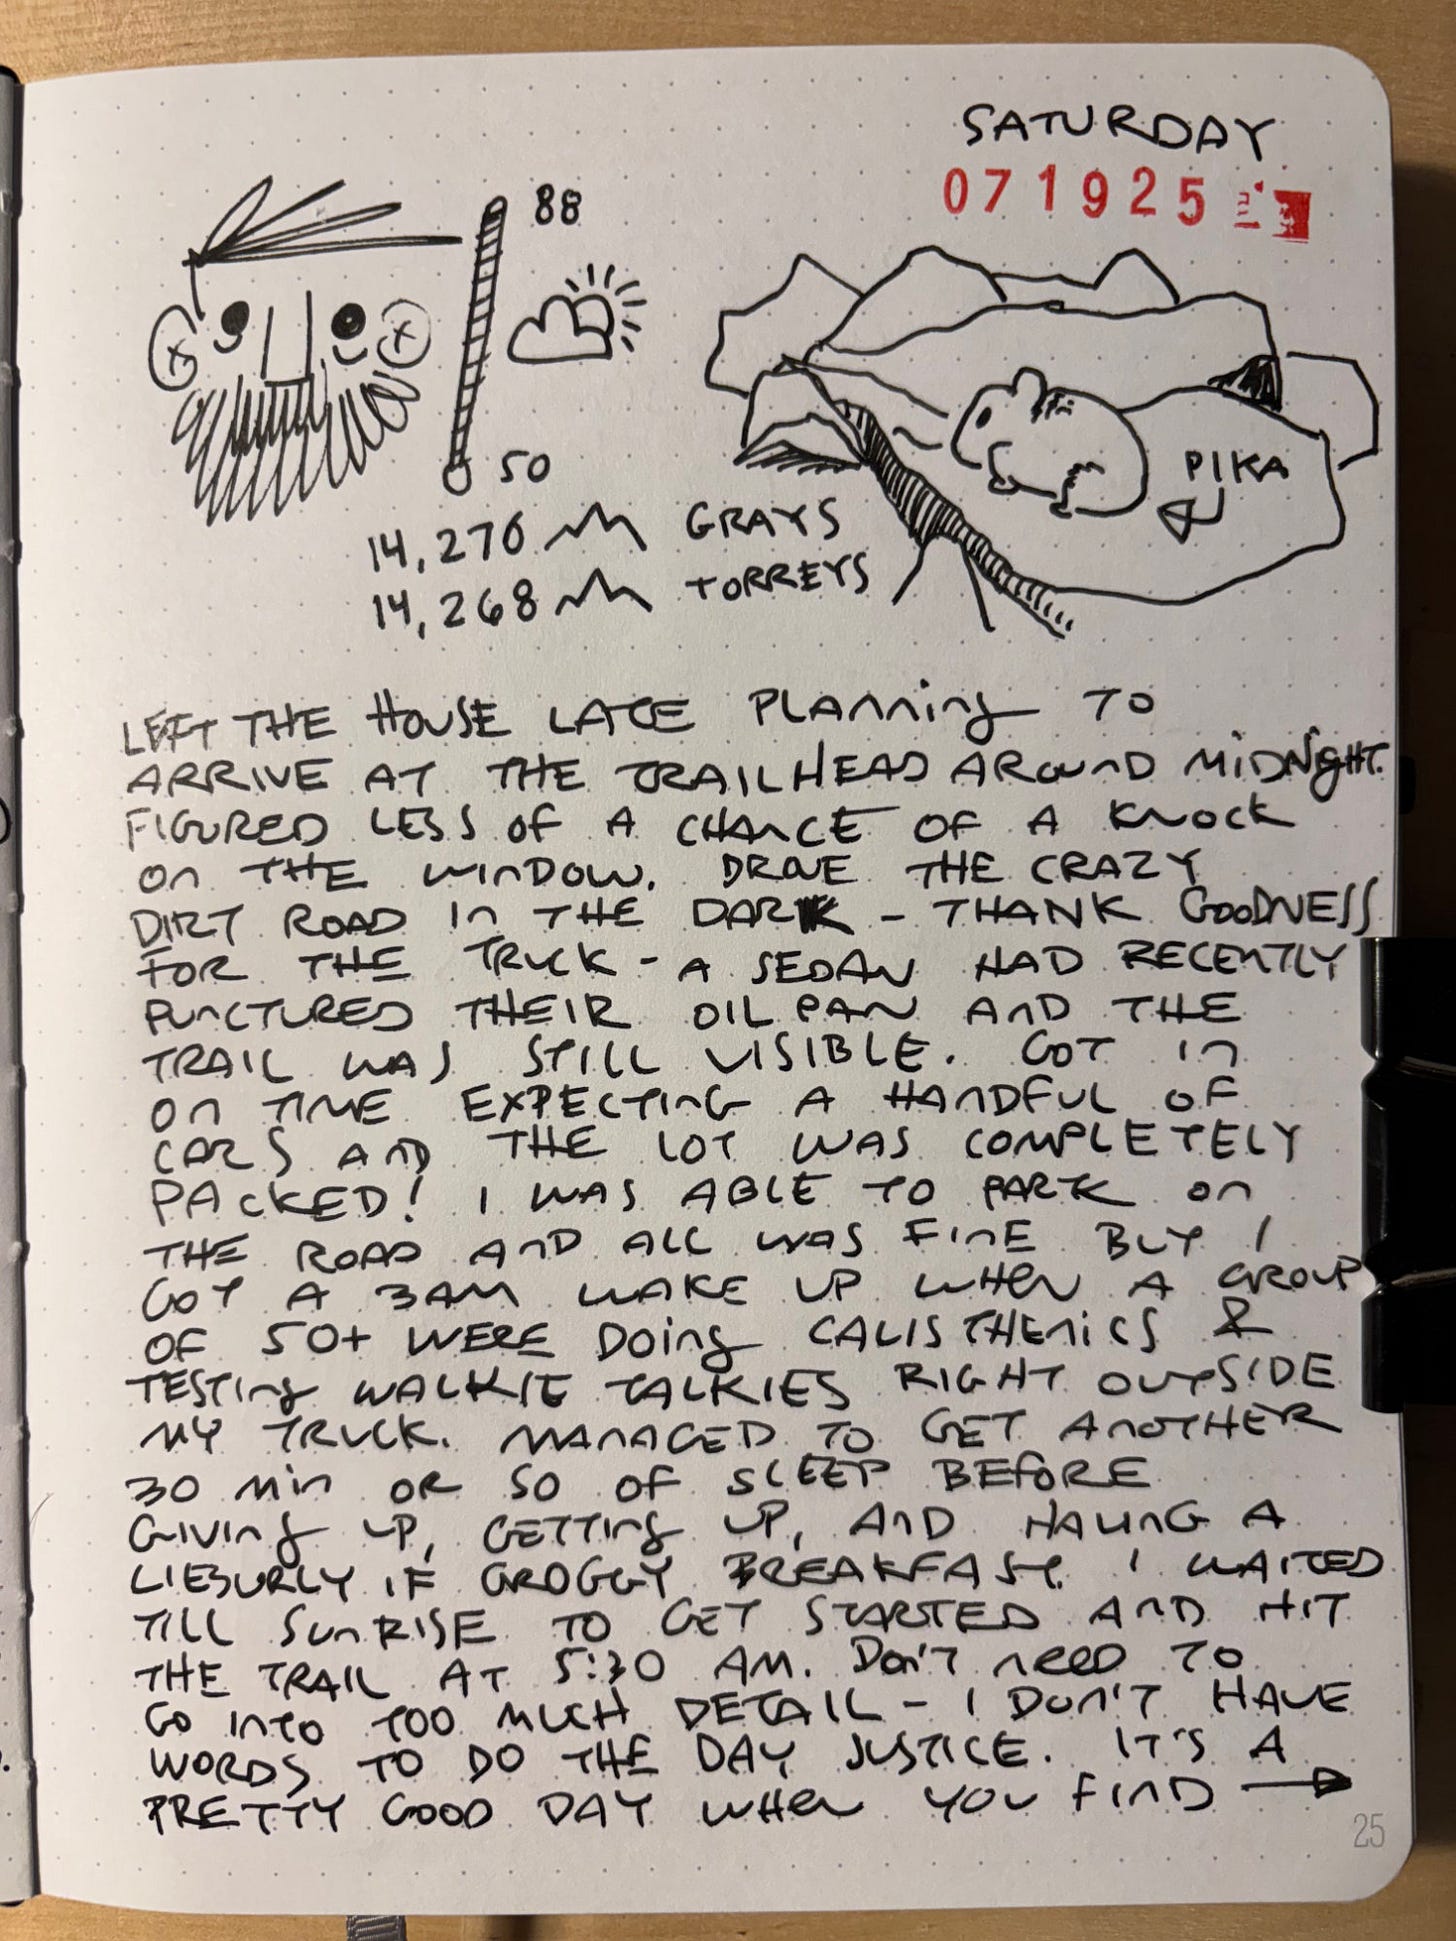 SATURDAY
071925
88
50
PIKA
14,270 GRAYS
14,268 TORREYS
LEFT THE HOUSE LATE PLANNING TO
ARRIVE AT THE TRAILHEAD AROUND MIDNIGHT.
FIGURED LESS OF A CHANCE OF A KNOCK
ON THE WINDOW. DROVE THE CRAZY
DIRT ROAD IN THE DARK - THANK GOODNESS
FOR THE TRUCK - A SEDAN HAD RECENTLY
PUNCTURED THEIR OIL PAN AND THE
TRAIL WAS STILL VISIBLE. GOT IN
ON TIME EXPECTING A HANDFUL OF
CARS AND THE LOT WAS COMPLETELY
PACKED! I WAS ABLE TO PARK ON
THE ROAD AND ALL WAS FINE BUT I
GOT A 3AM WAKE UP WHEN A GROUP
OF 50+ WERE DOING CALISTHENICS &
TESTING WALKIE TALKIES RIGHT OUTSIDE
MY TRUCK. MANAGED TO GET ANOTHER
30 MIN OR SO OF SLEEP BEFORE
GIVING UP, GETTING UP, AND HAVING A
LIESURLY IF GROGGY BREAKFAST. I WAITED
TILL SUNRISE TO GET STARTED AND HIT
THE TRAIL AT 5:30 AM. DON'T NEED TO
GO INTO TOO MUCH DETAIL - I DON'T HAVE
WORDS TO DO THE DAY JUSTICE. IT'S A
PRETTY GOOD DAY WHEN YOU FIND →
25